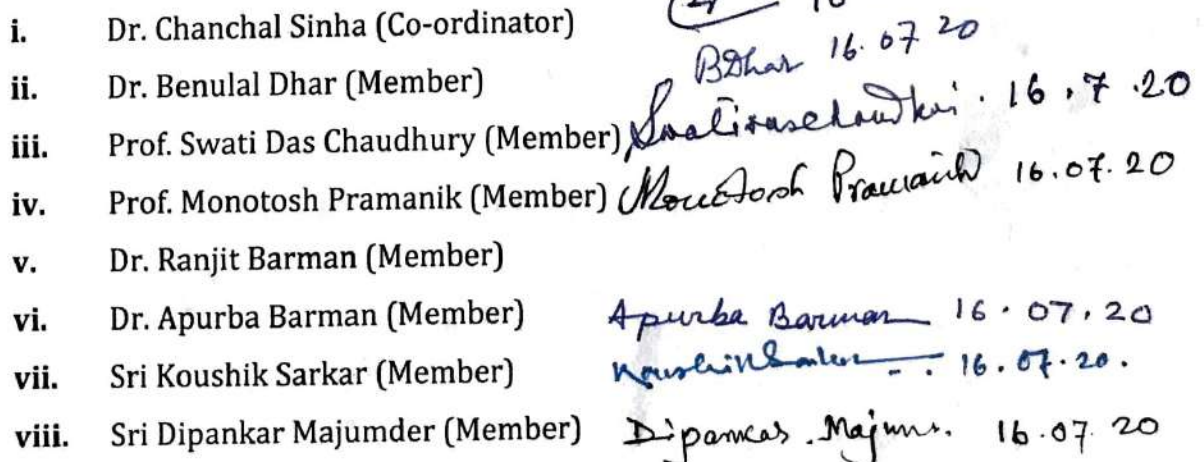 i. Dr. Chanchal Sinha (Co-ordinator)
ii. Dr. Benulal Dhar (Member) BDhar 16.07 20
iii. Prof. Swati Das Chaudhury (Member) 16.7.20
iv. Prof. Monotosh Pramanik (Member) Monotosh Pramanik 16.07.20
v. Dr. Ranjit Barman (Member)
vi. Dr. Apurba Barman (Member) Apurba Barman 16.07.20
vii. Sri Koushik Sarkar (Member) Koushik Sarkar 16.07.20.
viii. Sri Dipankar Majumder (Member) 16.07.20